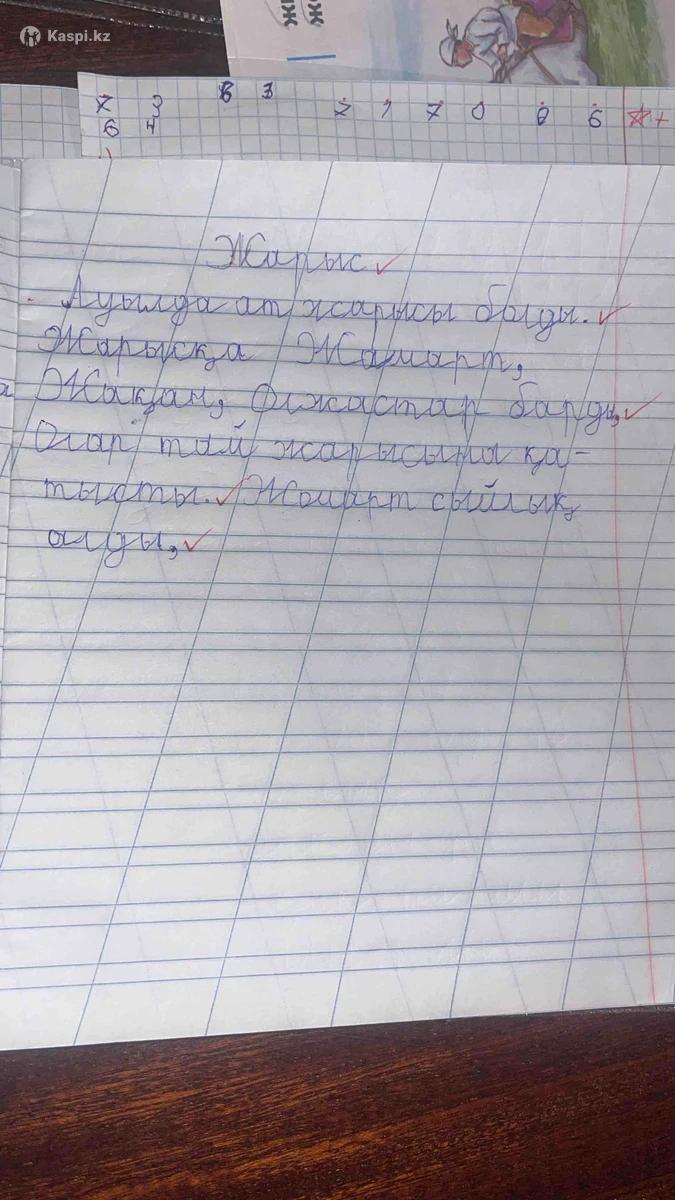 Kaspi.kz
ЖІЖ
7 3 8 3 2 1 7 0 0 6
6 4
Жарыс
Ауылда ат жарысы болды.
Жарысқа Жомарт,
Жақан, Олжастар барды,
Олар тай жарысына қа-
тысты. Жомарт сыйлық
алды,